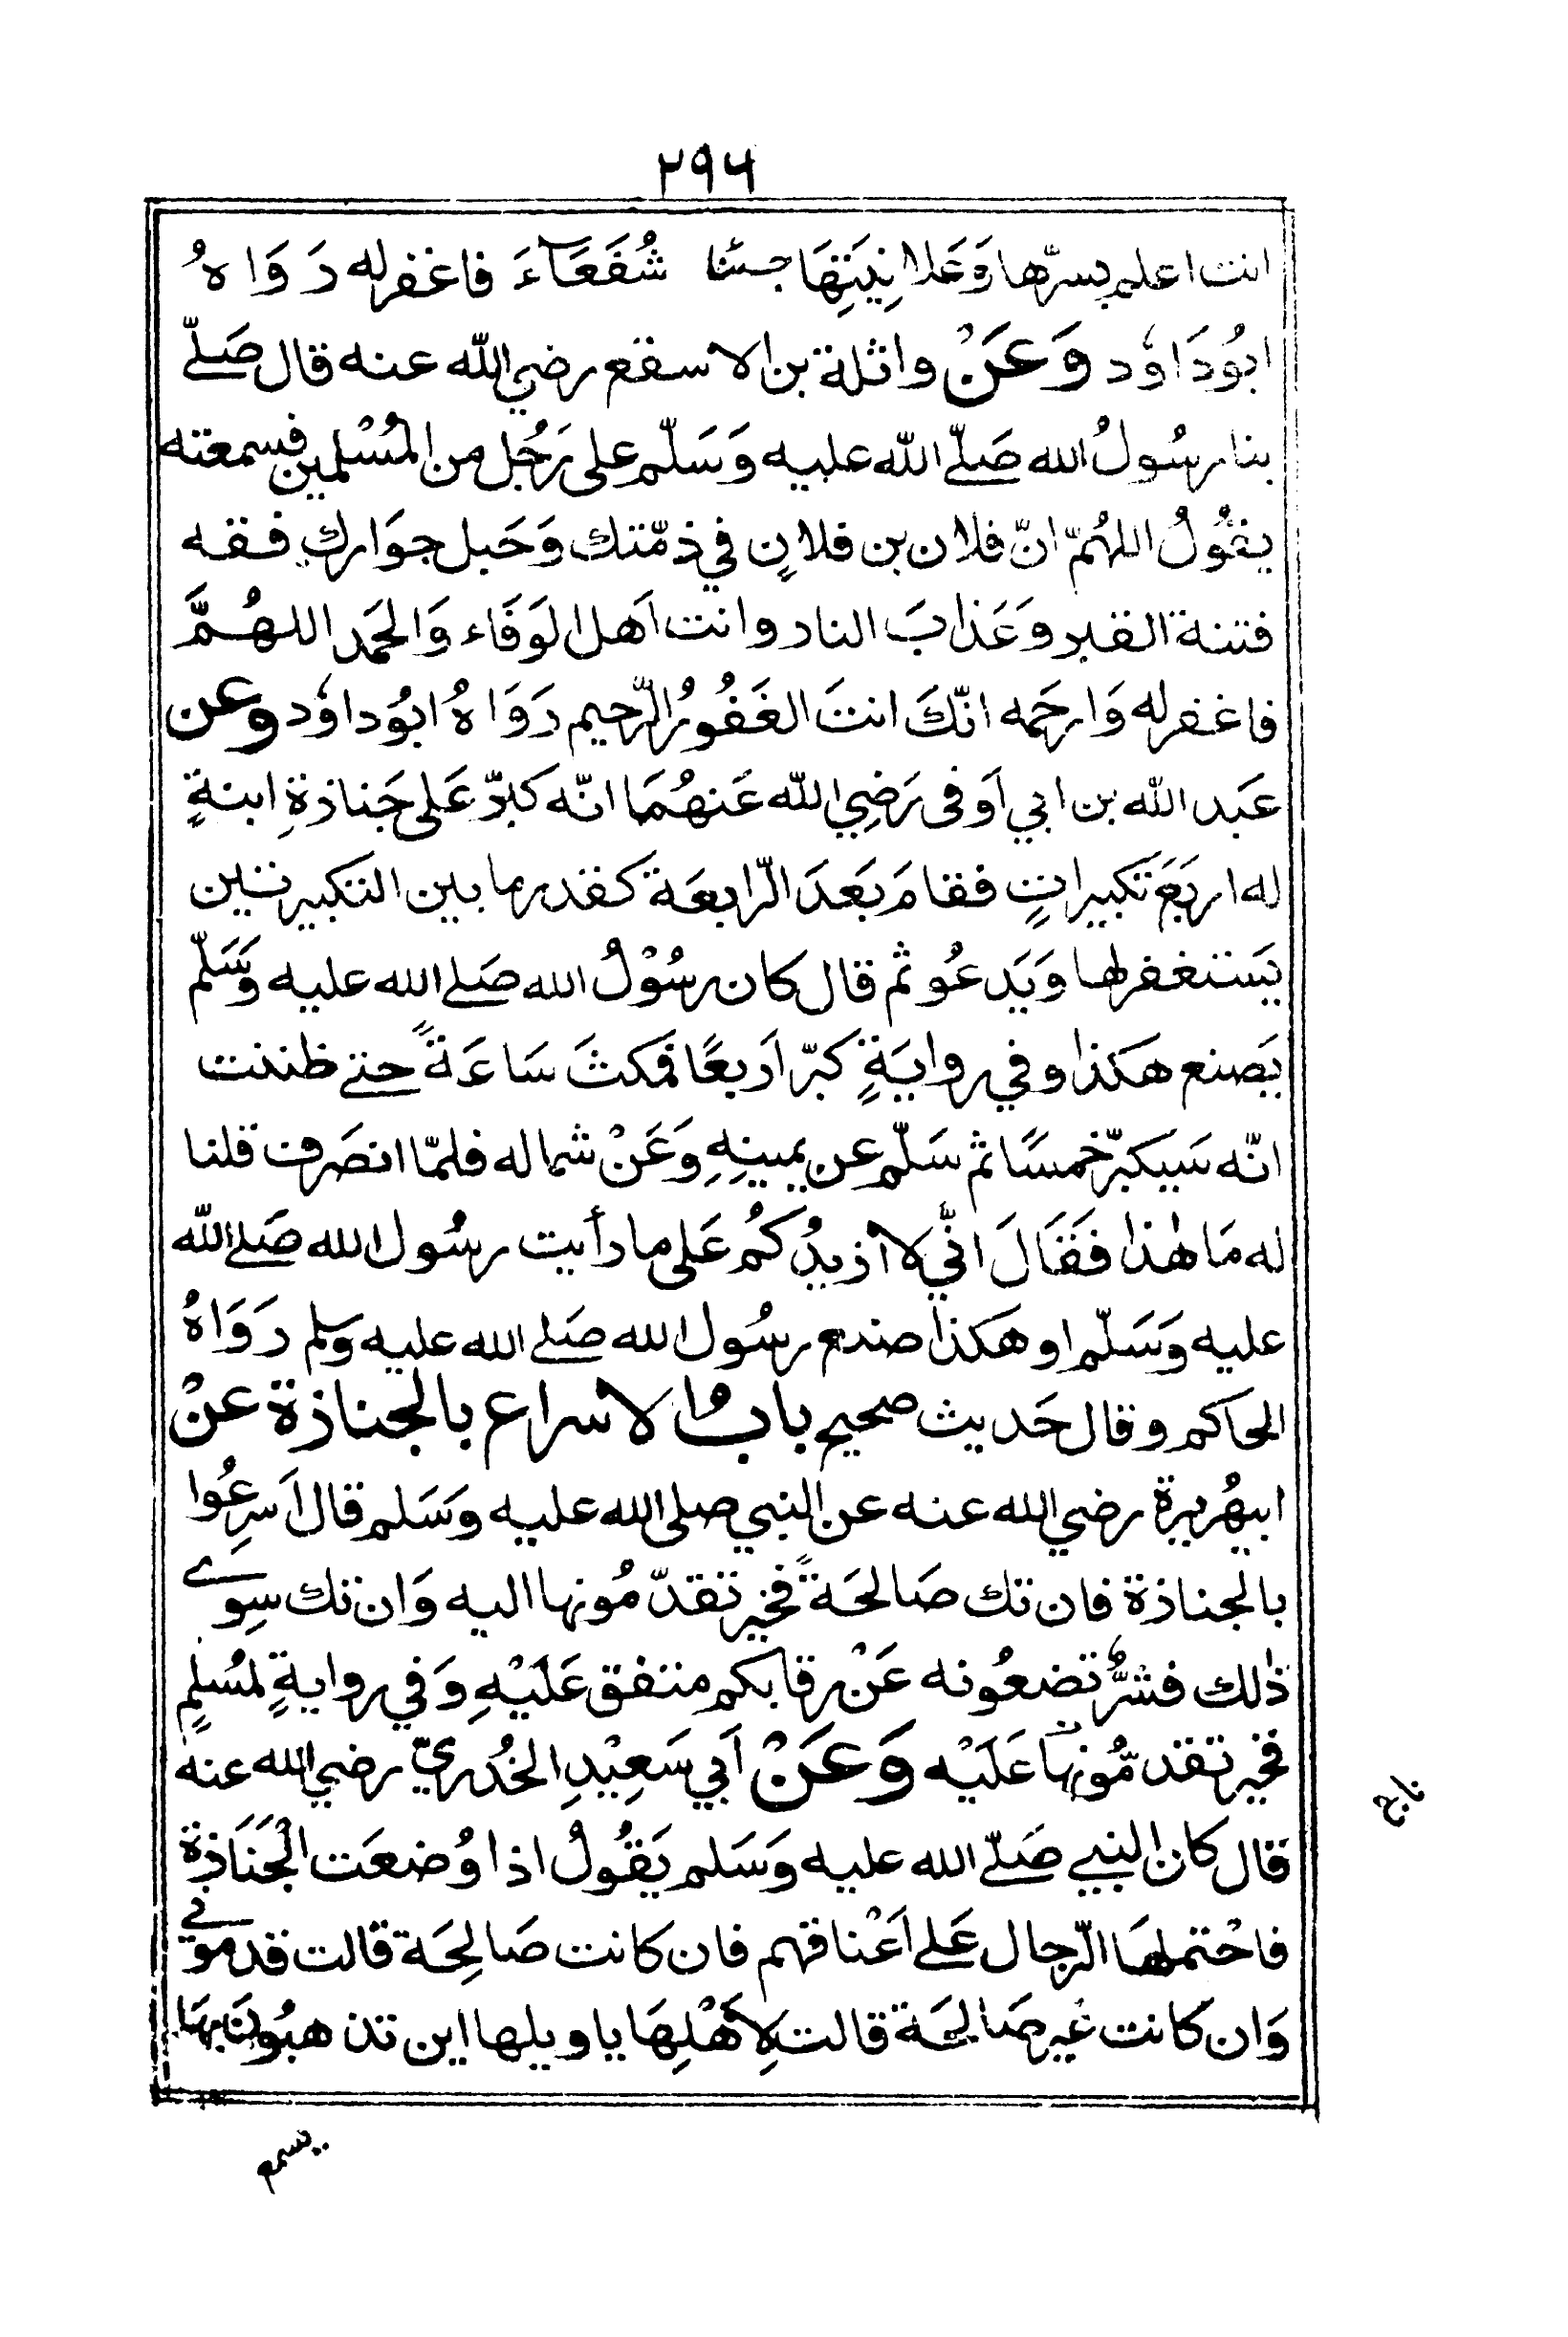 ٢٩٦
انت اعلم بسرّها وَعَلانِيَتِهَا جئنا شُفَعَآءَ فاغفرله رَوَاهُ
ابُودَاوٗد وَعَنْ واثلة بن الاسقع رضي الله عنه قال صَلّے
بنا رسُولُ الله صَلّے الله عليه وَسَلّم على رَجُل من المُسْلمين فسمعته
يقُولُ اللهُمّ انّ فلان بن فلانٍ في ذمّتك وَحَبل جوَارك فقه
فتنة القبر وَعَذابَ النار وانت اَهل الوَفَاء وَالحَمد اللهُمَّ
فاغفرله وَارحَمه انّكَ انتَ الغَفُورُ الرّحيم رَوَاهُ ابُوداوٗد وعن
عَبد الله بن ابي اَوفى رَضِي الله عَنهُمَا انّه كبّر عَلى جَنازةِ ابنةٍ
له اربَعَ تَكبيراتٍ فقامَ بَعدَ الرّابعَة كَقدر ما بين التكبيرتين
يَستغفرلها وَيَدعُو ثم قال كان رسُوْلُ الله صَلے الله عليه وَسَلّم
يَصنع هكَذا وفي روايَةٍ كبّر اَربعًا فمكثَ سَاعَةً حتے ظننت
انّه سَيكبّر خمسًا ثم سَلّم عن يمينِهِ وَعَنْ شماله فلمّا انصَرف قلنا
له مَا هٰذا فَقَالَ انّي لا اَزيدُكُم عَلى ما رأيت رسُول الله صَلے الله
عليه وَسَلّم او هكذا صنع رسُول الله صَلے الله عليه وسلم رَوَاهُ
الحاكم وقال حَديث صحيح بابُ الاسراع بالجنازة عنْ
ابيهُريرة رضي الله عنه عن النبي صلى الله عليه وَسَلم قال اَسرِعُوا
بالجنازة فان تك صَالحَةً فخير تقدّمُونها اليه وَان تك سِوے
ذٰلك فشرٌّ تضعُونه عَنْ رقابكم متفق عَلَيْهِ وَفي روايةٍ لمُسلمٍ
فخير تقدّمُونها عَلَيْه وَعَنْ اَبي سَعِيْدِ الخُدريّ رضي الله عنه
قال كان النبي صَلّے الله عليه وَسَلم يَقُولُ اذا وُضعَت الْجَنَازة
فاحْتملهَا الرّجال عَلے اَعْناقهم فان كانت صَالِحَة قالت قدموني
وَان كانت غير صَالحَة قالت لِاَهْلِهَا يا ويلها اين تذهبُونَ بهَا
يسمع